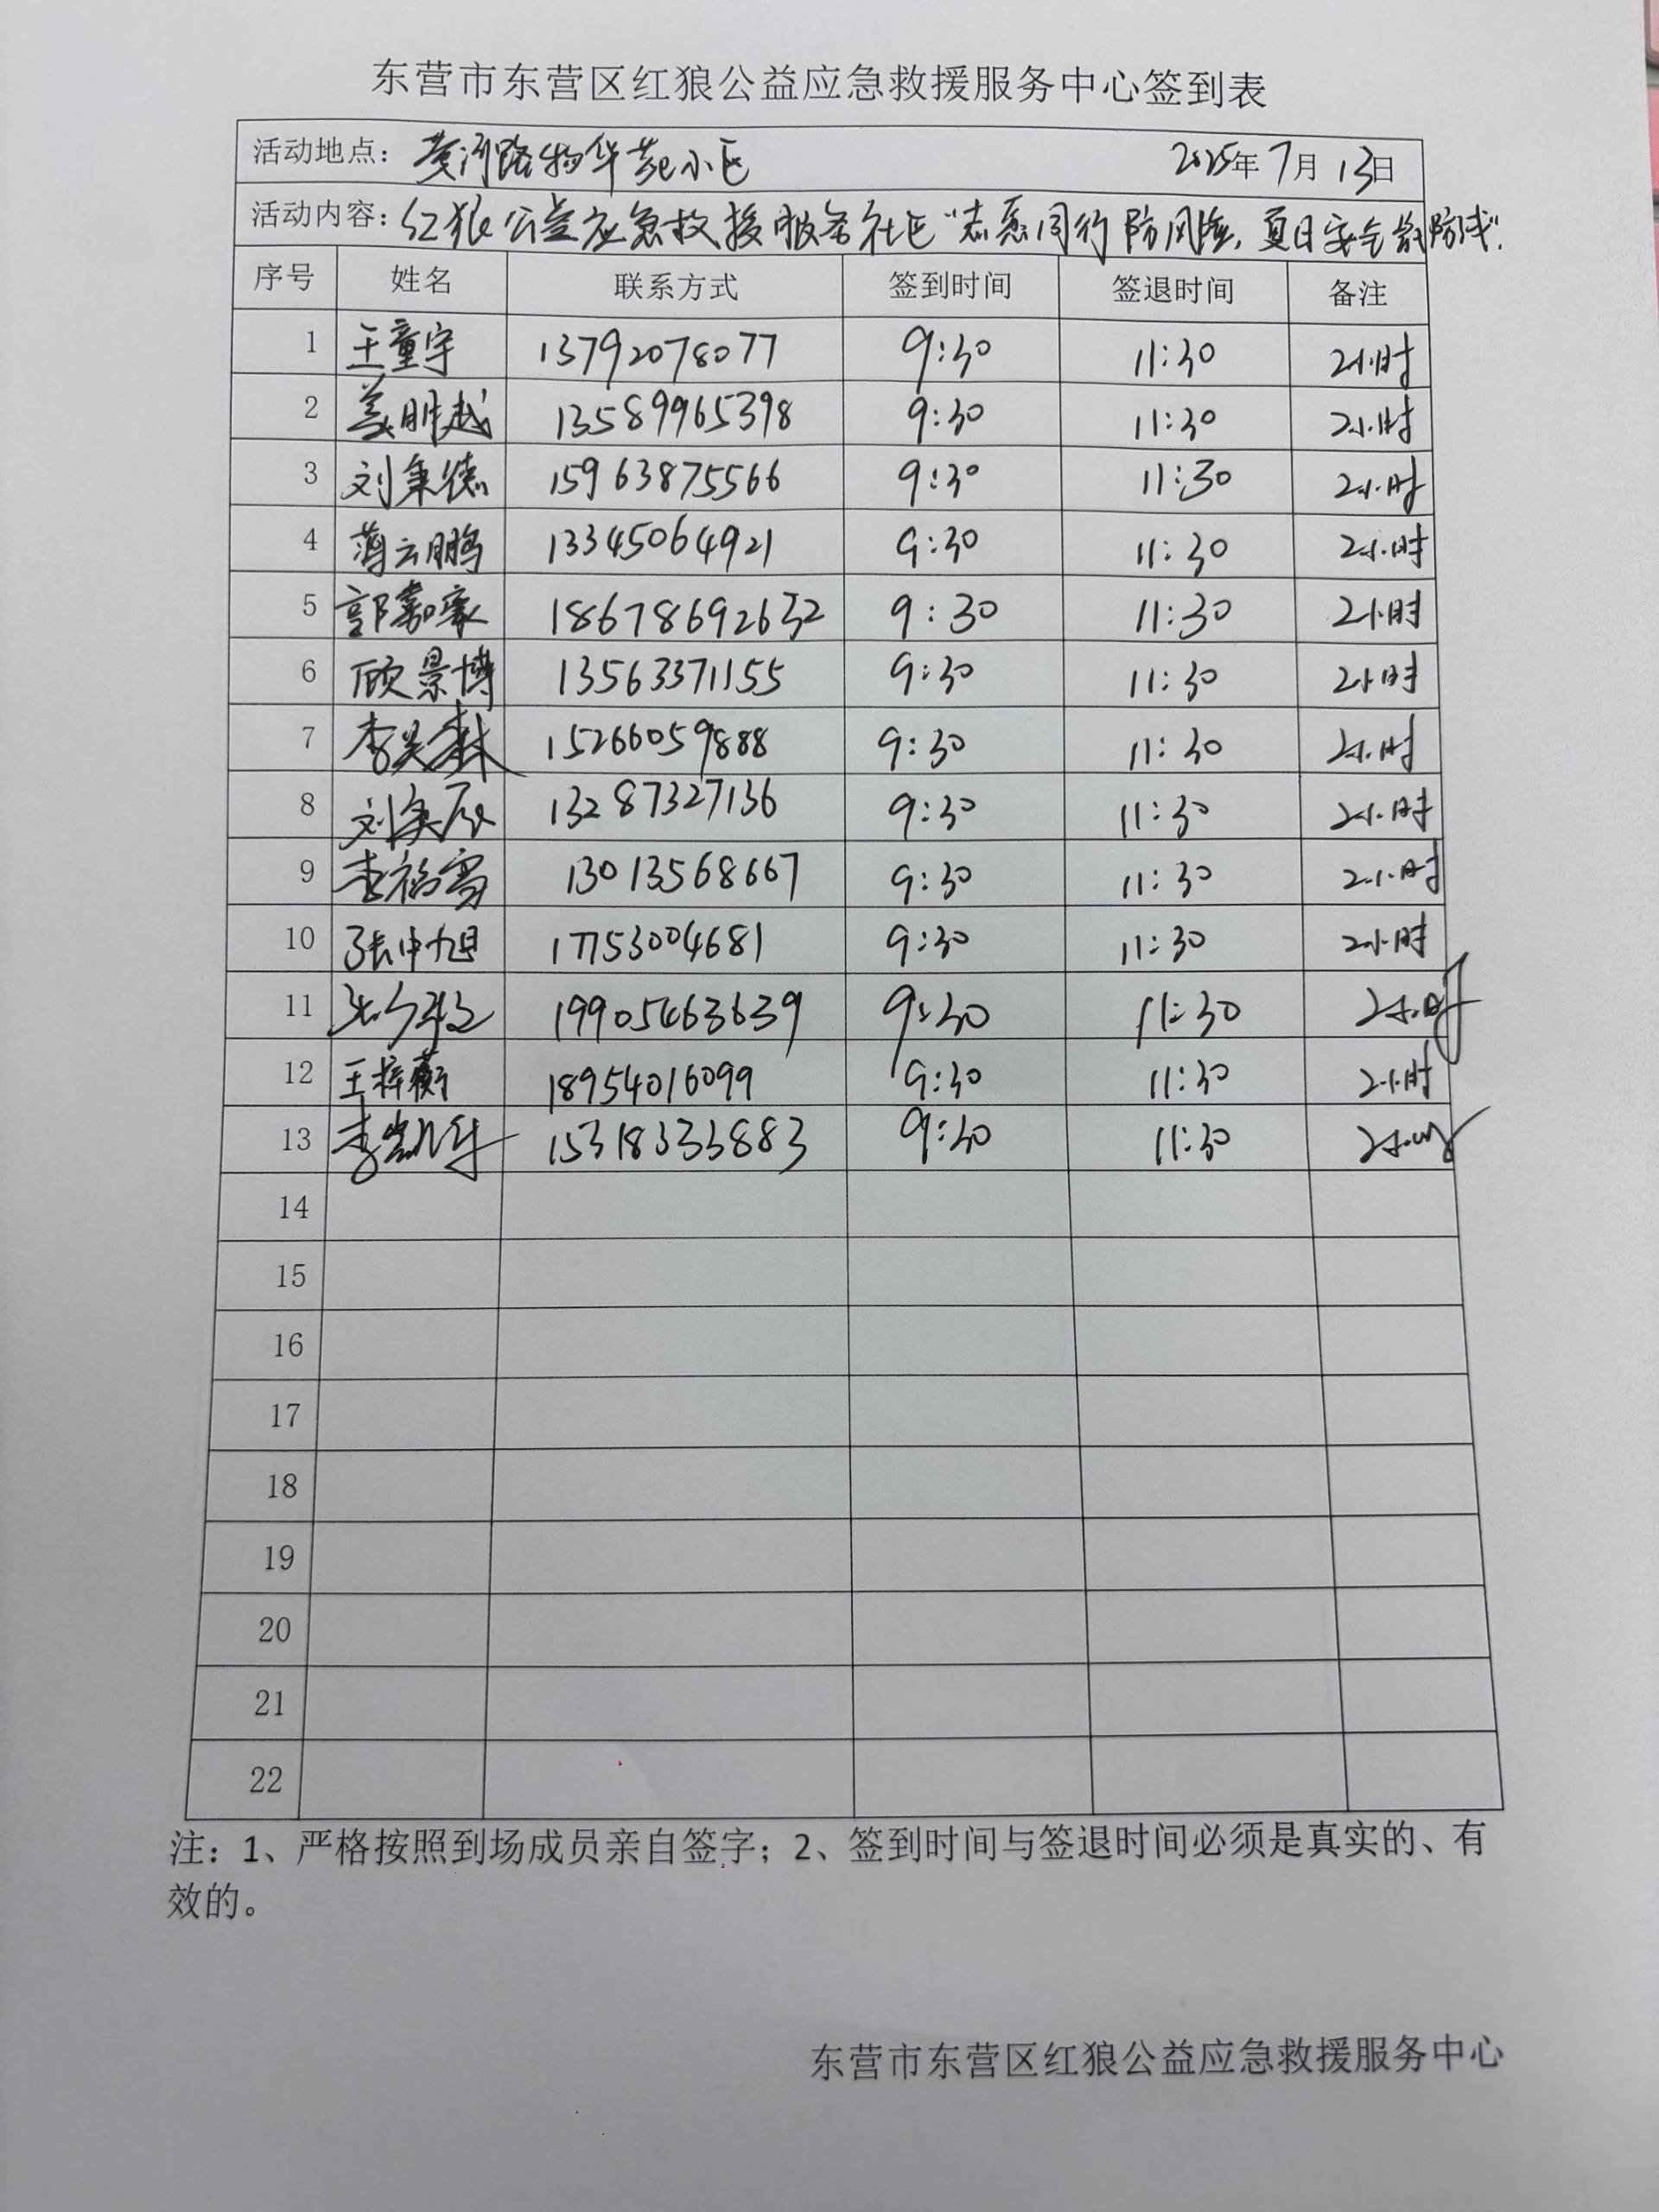 东营市东营区红狼公益应急救援服务中心签到表
活动地点：黄河路物华苑小区 2025年7月13日
活动内容：红狼公益应急救援服务社区“志愿同行防风险，夏日安全筑防线”.
序号 姓名 联系方式 签到时间 签退时间 备注
1 王童宇 13792078077 9:30 11:30 2小时
2 姜明越 13589965398 9:30 11:30 2小时
3 刘秉德 15963875566 9:30 11:30 2小时
4 薄云鹏 13345064921 9:30 11:30 2小时
5 郭嘉豪 18678692632 9:30 11:30 2小时
6 顾景博 13563371155 9:30 11:30 2小时
7 李昊森 15266059888 9:30 11:30 2小时
8 刘奕辰 13287327136 9:30 11:30 2小时
9 李裕雪 13013568667 9:30 11:30 2小时
10 张申旭 17753004681 9:30 11:30 2小时
11 19905463639 9:30 11:30 2小时
12 王梓蘅 18954016099 9:30 11:30 2小时
13 李凯 15318333883 9:30 11:30 2小时
14
15
16
17
18
19
20
21
22
注：1、严格按照到场成员亲自签字；2、签到时间与签退时间必须是真实的、有
效的。
东营市东营区红狼公益应急救援服务中心